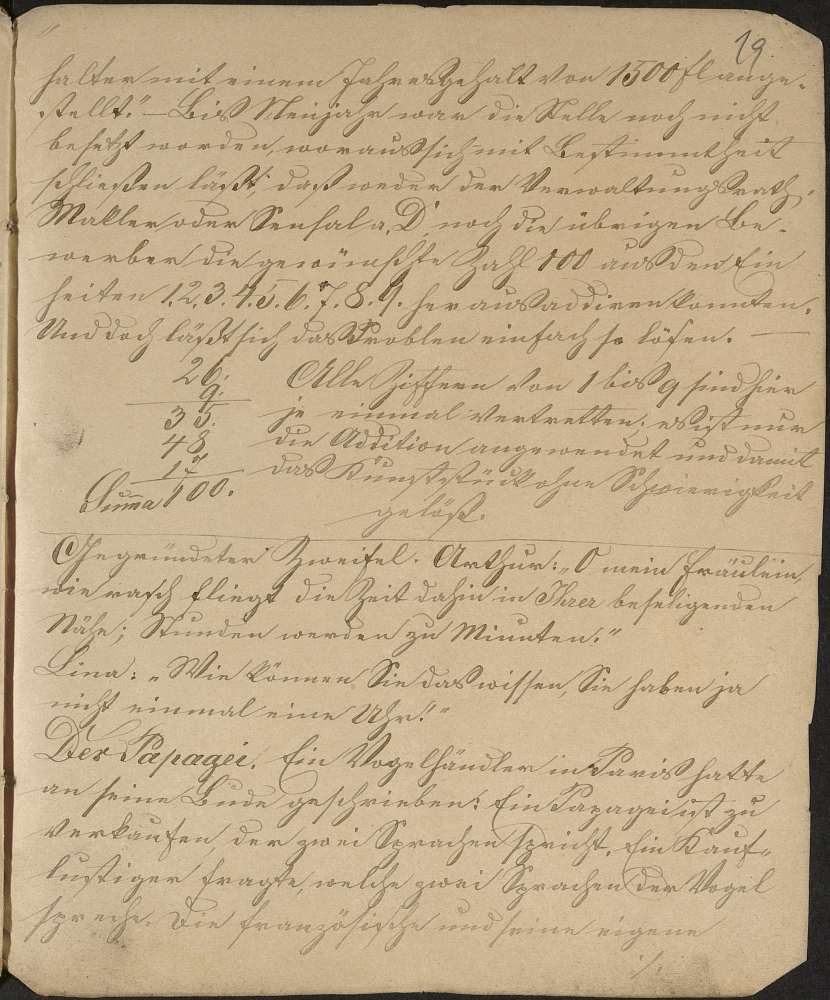 19.
halter mit einem Jahresgehalt von 1500 fl ange-
stellt." – Bis Neujahr war die Stelle noch nicht
besetzt worden, woraus sich mit Bestimmtheit
schließen läßt, daß weder der Verwaltungsrath,
Makler oder Sensal a. D. noch die übrigen Be-
werber die gewünschte Zahl 100 aus den Ein
heiten 1. 2. 3. 4. 5. 6. 7. 8. 9. heraus addiren konnten.
Und doch läßt sich das Problem einfach so lösen. —
26. Alle Ziffern von 1 bis 9 sind hier
9. je einmal vertretten; es ist nur
35. die Addition angewendet und damit
48 das Kunststück ohne Schwierigkeit
17 gelöst.
Summa 100.
Gegründeter Zweifel. Arthur: „O mein Fräulein,
wie rasch fliegt die Zeit dahin in Ihrer beseligenden
Nähe; Stunden werden zu Minuten."
Lina: „Wie können Sie das wissen, Sie haben ja
nicht einmal eine Uhr!"
Der Papagei. Ein Vogelhändler in Paris hatte
an seine Bude geschrieben: Ein Papagei ist zu
verkaufen, der zwei Sprachen spricht. Ein Kauf-
lustiger fragte, welche zwei Sprachen der Vogel
spreche. Die französische und seine eigene
./.